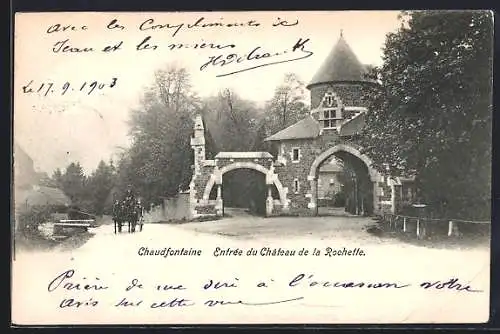 avec les Compliments ic
Jean et les miens
Le 17.9.1903
Chaudfontaine Entrée du Château de la Rochette.
Prière de me dire à l'occasion votre
avis sur cette vue